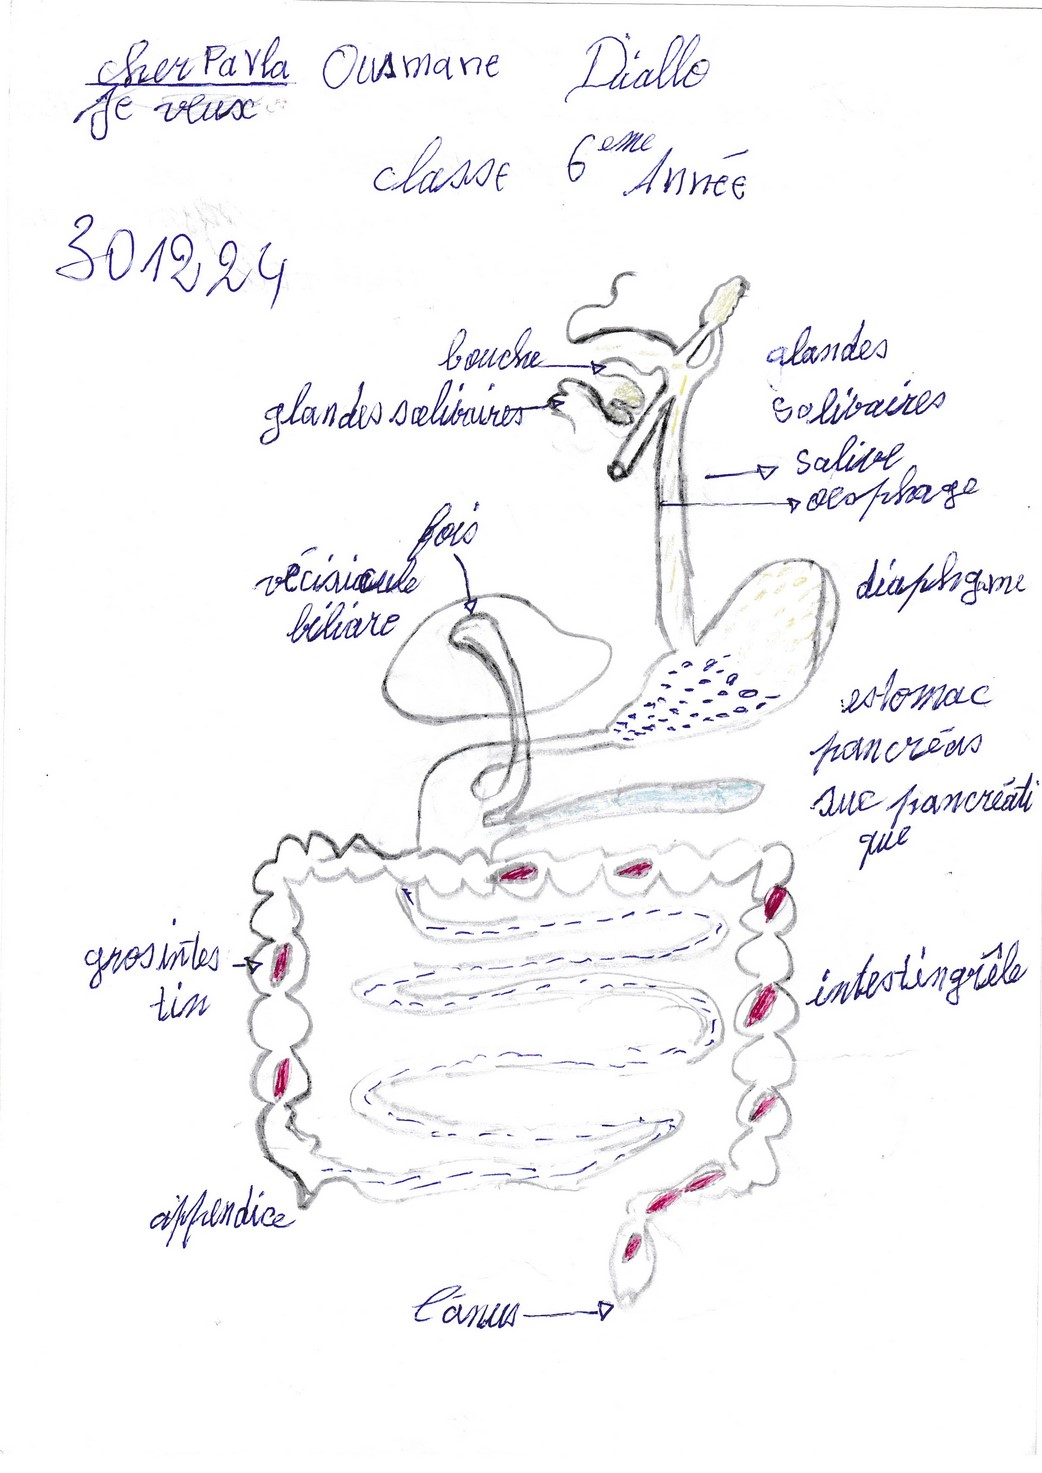 cher Pavla Ousmane Diallo
Je veux
classe 6eme Année
301224
bouche
glandes salivaires
glandes
salivaires
salive
oesophage
fois
biliare
diaphgme
estomac
pancréas
suc pancréati
que
gros intes
tin
intestingrêle
appendice
l'ánus